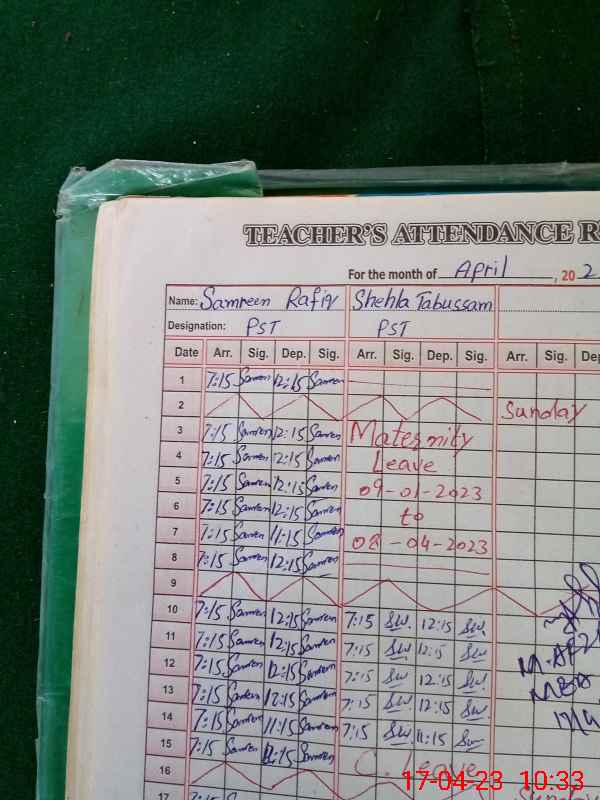 TEACHER'S ATTENDANCE R
For the month of April, 202
Name: Samreen Rafiq Shehla Tabussam
Designation: PST PST
Date Arr. Sig. Dep. Sig. Arr. Sig. Dep. Sig. Arr. Sig. Dep
1 7:15 Samren 12:15 Samren
2 Sunday
3 7:15 Samren 12:15 Samren Maternity
4 7:15 Samren 12:15 Samren Leave
5 7:15 Samren 12:15 Samren 09-01-2023
6 7:15 Samren 12:15 Samren to
7 7:15 Samren 11:15 Samren 08-04-2023
8 7:15 Samren 12:15 Samren
9
10 7:15 Samren 12:15 Samren 7:15 SW. 12:15 SW.
11 7:15 Samren 12:15 Samren 7:15 SW 12:15 SW.
12 7:15 Samren 12:15 Samren 7:15 SW 12:15 SW.
13 7:15 Samren 12:15 Samren 7:15 SW 12:15 SW.
14 7:15 Samren 11:15 Samren 7:15 SW. 11:15 SW
15 7:15 Samren 12:15 Samren C. Leave
16 Sunday
17 7:15
17-04-23 10:33